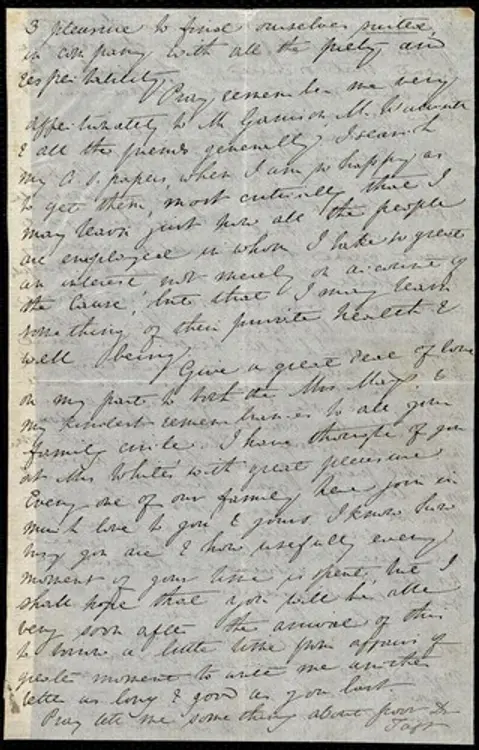 & pleasure to find ourselves united,
in company with all the piety and
respectability.
Pray remember me very
affectionately to Mr Garrison Mr
& all the friends generally. I search
my A. S. papers when I am so happy as
to get them, most critically that I
may learn just how all the people
are employed in whom I take so great
an interest not merely on account of
the cause, but that I may learn
something of their private health &
well being.
Give a great deal of love
on my part to both the Mrs Mays &
my kindest remembrances to all your
family circle. I have thought of you
at Mrs White's with great pleasure
Every one of our family here join in
much love to you & yours. I know how
busy you are & how usefully every
moment of your time is spent, but I
shall hope that you will be able
very soon after the arrival of this
to borrow a little time from affairs of
greater moment to write me another
letter as long & good as your last
Pray let me something about poor Dr